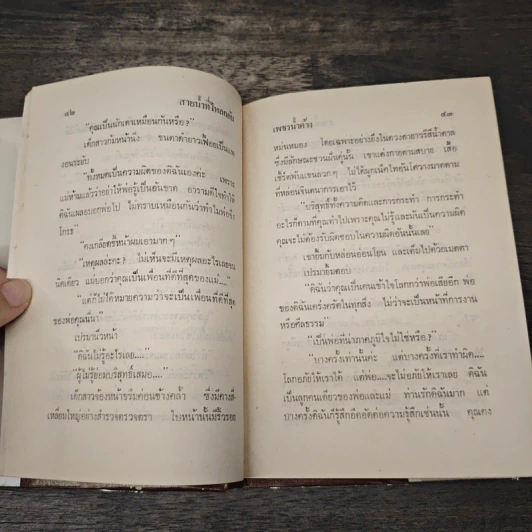 ๔๒
สายน้ำที่ไหลกลับ
"คุณเป็นนักเคมเหมือนกันหรือ?"
เด็กสาวก้มหน้านิ่ง ขนตาดำยาวเฟื้อยเป็นแพ
งอนระยับ
"ทั้งหมดเป็นความผิดของดิฉันเองค่ะ เพราะ
แม่ห้ามแล้วว่าอย่าให้พ่อรู้เป็นอันขาด อารามดีใจทำให้
ดิฉันเผลอบอกพ่อไป ไม่ทราบเหมือนกันว่าทำไมพ่อจึง
โกรธ"
"คงเกลียดขี้หน้าผมเอามากๆ"
"เหตุผลล่ะคะ? ไม่เห็นจะมีเหตุผลอะไรเลยจน
นิดเดียว แม่บอกว่าคุณเป็นเพื่อนที่ดีที่สุดของแม่...."
"แต่ก็ไม่ได้หมายความว่าจะเป็นเพื่อนที่ดีที่สุด
ของพ่อคุณนี่นา"
เปรมานิ่วหน้า
"ดิฉันไม่รู้อะไรเลย...."
"ผู้ไม่รู้ย่อมบริสุทธิ์เสมอ...."
เด็กสาวจ้องหน้าขรึมค่อนข้างคล้ำ ซึ่งมีคางสี่
เหลี่ยมใหญ่อย่างสำรวจตรวจตรา ใบหน้านั้นมีริ้วรอย
เพชรน้ำค้าง
๔๓
หม่นหมอง โดยเฉพาะอย่างยิ่งในดวงตายาวรีสีน้ำตาล
ซึ่งมีลักษณะชวนฝันคู่นั้น เขาแต่งกายตามสบาย เสื้อ
เชิ้ร์ตพับแขนลวกๆ ไม่ได้ผูกเน็คไทยันโคว่างมาดตาม
ที่หล่อนจินตนาการเอาไว้
"บริสุทธิ์ทั้งความคิดและการกระทำ การกระทำ
อะไรก็ตามที่คุณทำไปเพราะคุณไม่รู้และมันเป็นความผิด
คุณจะไม่ต้องรับผิดชอบในความผิดอันนั้นเลย"
เขายิ้มกับหล่อนอ่อนโยน และเต็มไปด้วยเมตตา
เปรมายิ้มตอบ
"ดิฉันว่าคุณเป็นคนเข้าใจโลกกว่าพ่อเสียอีก พ่อ
ของดิฉันเคร่งครัดในทุกสิ่ง ไม่ว่าจะเป็นหน้าที่การงาน
หรือศีลธรรม"
"เป็นพ่อที่น่าภาคภูมิใจไม่ใช่หรือ?"
"บางครั้งเท่านั้นค่ะ แต่บางครั้งที่เราทำผิด....
โลกอภัยให้เราได้ แต่พ่อ....จะไม่อภัยให้เราเลย ดิฉัน
เป็นลูกคนเดียวของพ่อและแม่ ท่านรักดิฉันมาก แต่
บางครั้งดิฉันก็รู้สึกอึดอัดต่อความรู้สึกเช่นนั้น คุณคง